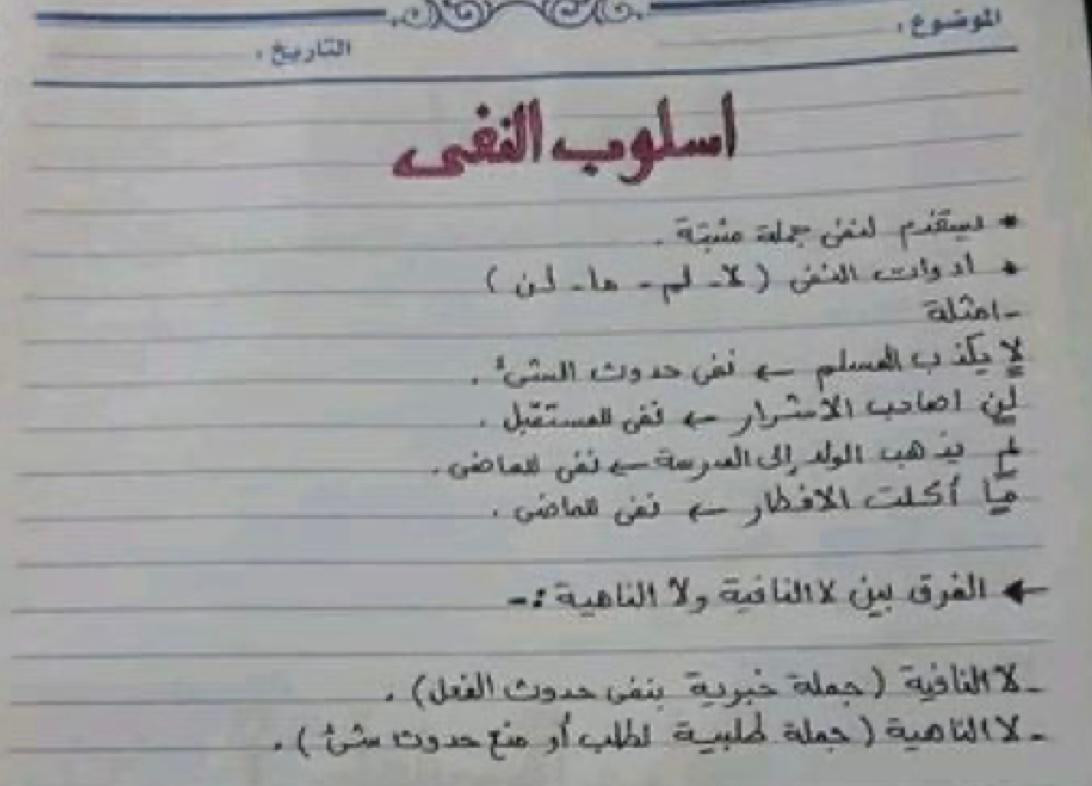 الموضوع :
التاريخ :
اسلوب النفى
* يستخدم لنفى جملة مثبتة .
* ادوات النفى ( لا - لم - ما - لن )
- امثلة
لا يكذب المسلم ← نفى حدوث الشئ .
لن اصاحب الاشرار ← نفى المستقبل .
لم يذهب الولد إلى المدرسة ← نفى الماضى .
ما أكلت الافطار ← نفى الماضى .
← الفرق بين لا النافية ولا الناهية :-
- لا النافية ( جملة خبرية بنفى حدوث الفعل ) .
- لا الناهية ( جملة طلبية لطلب أو منع حدوث شئ ) .